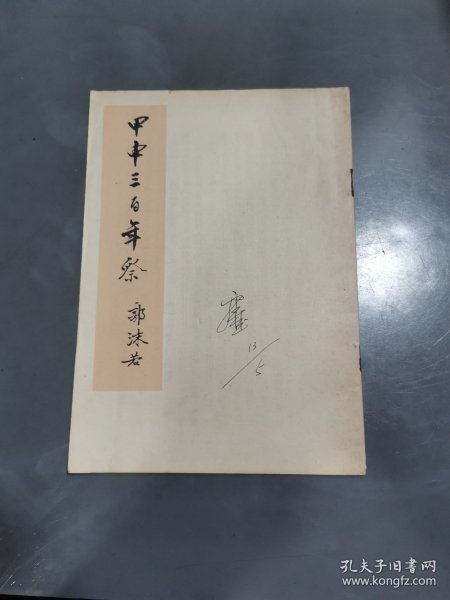 甲申三百年祭
郭沫若
13/5
孔夫子旧书网
www.kongfz.com